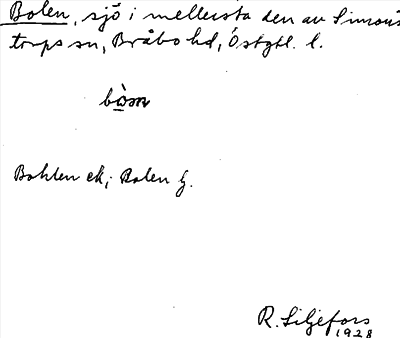 Bolen, sjö i mellersta den av Simons
torps sn, Bråbo hd, Östgtl. l.
Bohlen ek; Bolen g.
R. Liljefors
1928